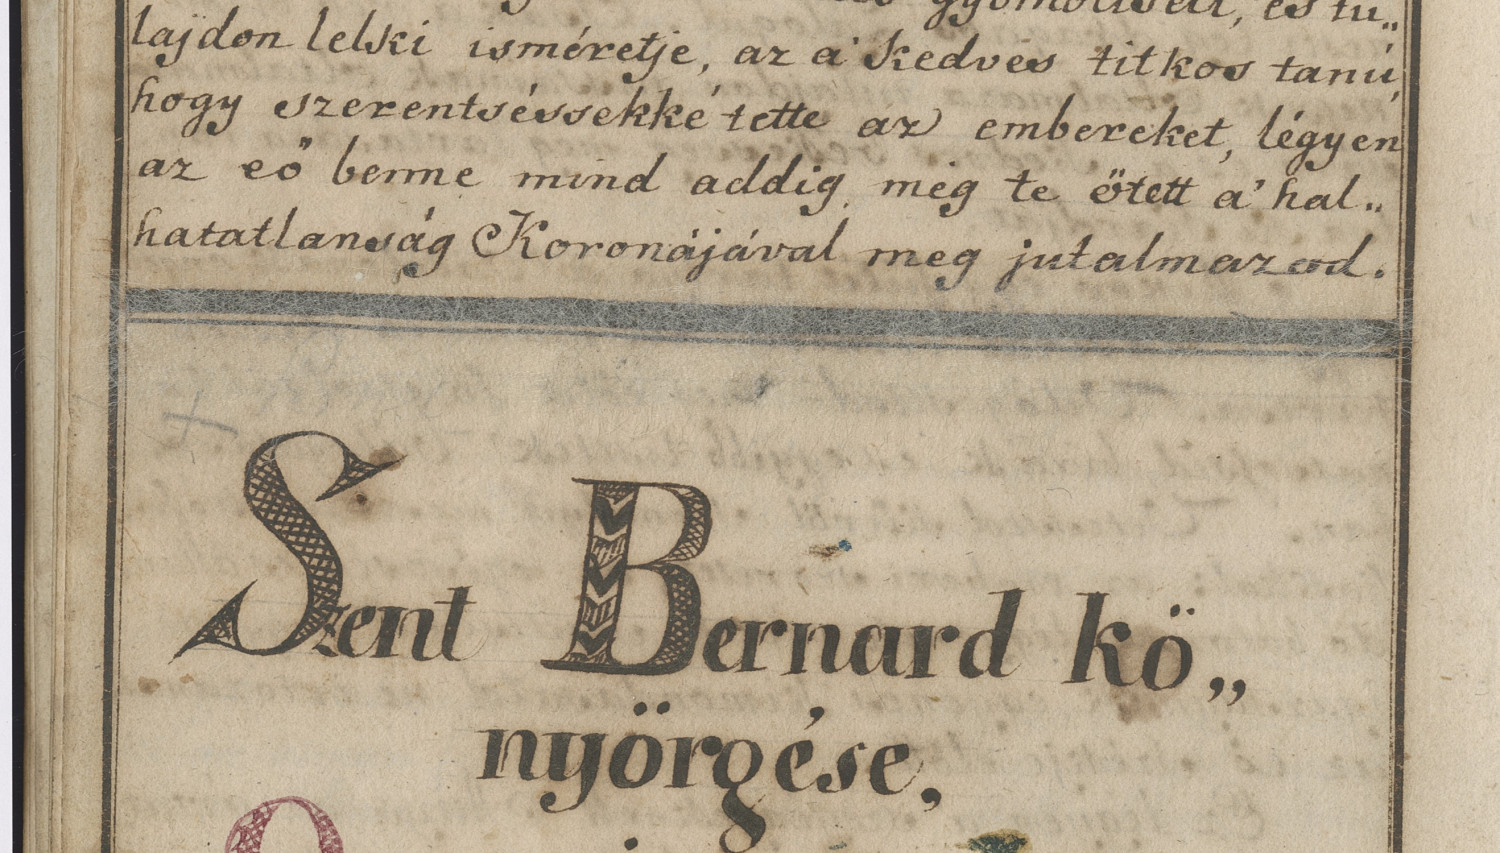 gyömöltsell, és tu„
lajdon lelski isméretje, az a' kedves titkos tanú,
hogy szerentséssekké tette az embereket, légyen
az eő benne mind addig, még te őtett a' hal„
hatatlanság Koronájával meg jutalmazod.
Szent Bernard kö„
nyörgése,